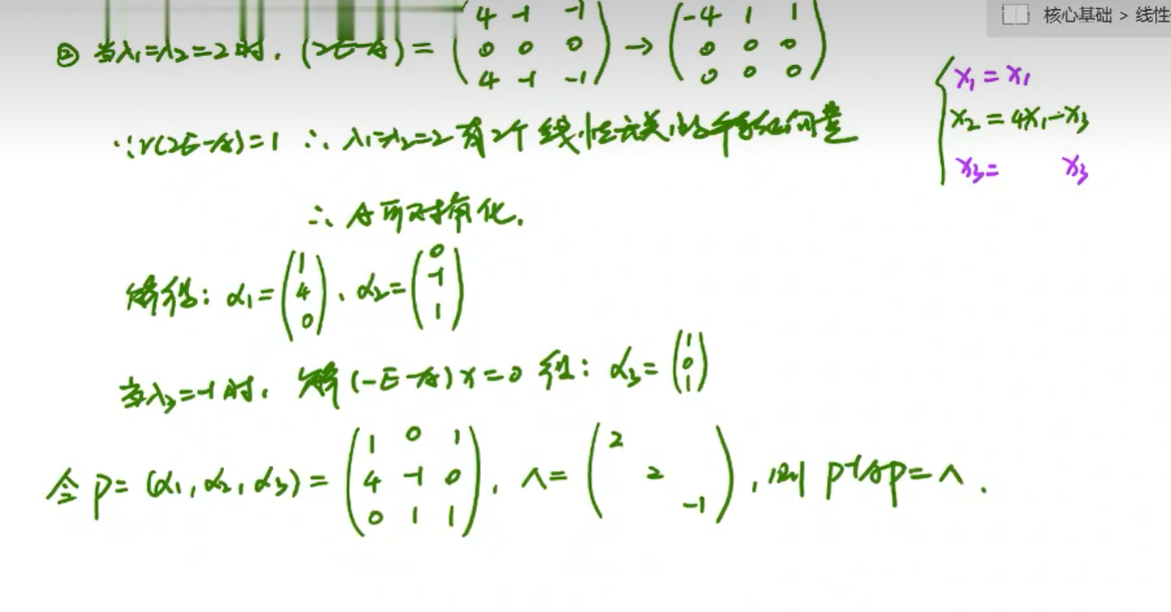 核心基础 > 线性
② 当λ₁=λ₂=2时. (2E-A) = (4 -1 -1; 0 0 0; 4 -1 -1) → (-4 1 1; 0 0 0; 0 0 0)
{ x₁ = x₁
x₂ = 4x₁-x₃
x₃ = x₃
∵ r(2E-A)=1 ∴ λ₁=λ₂=2 有2个线性无关的特征向量
∴ A可对角化.
解得: α₁ = (1; 4; 0), α₂ = (0; -1; 1)
当λ₃=-1时, 解(-E-A)x=0 得: α₃ = (1; 0; 1)
令 P = (α₁, α₂, α₃) = (1 0 1; 4 -1 0; 0 1 1), Λ = (2; 2; -1), 则 P⁻¹AP = Λ.